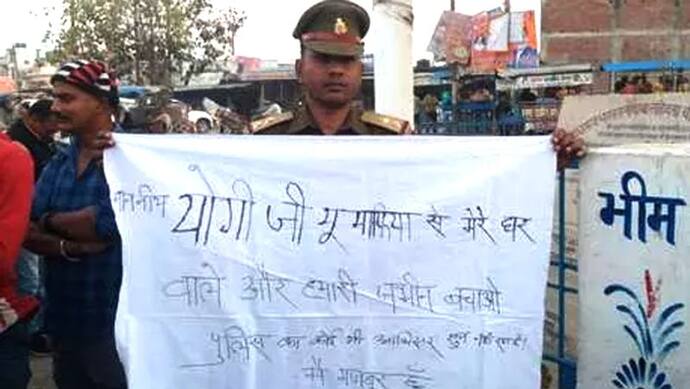 माननीय योगी जी भू माफिया से मेरे घर
वाले और हमारी जमीन बचाओ
पुलिस का कोई भी आफिसर सुन नहीं रहा है।
मैं मजबूर हूँ
भीम